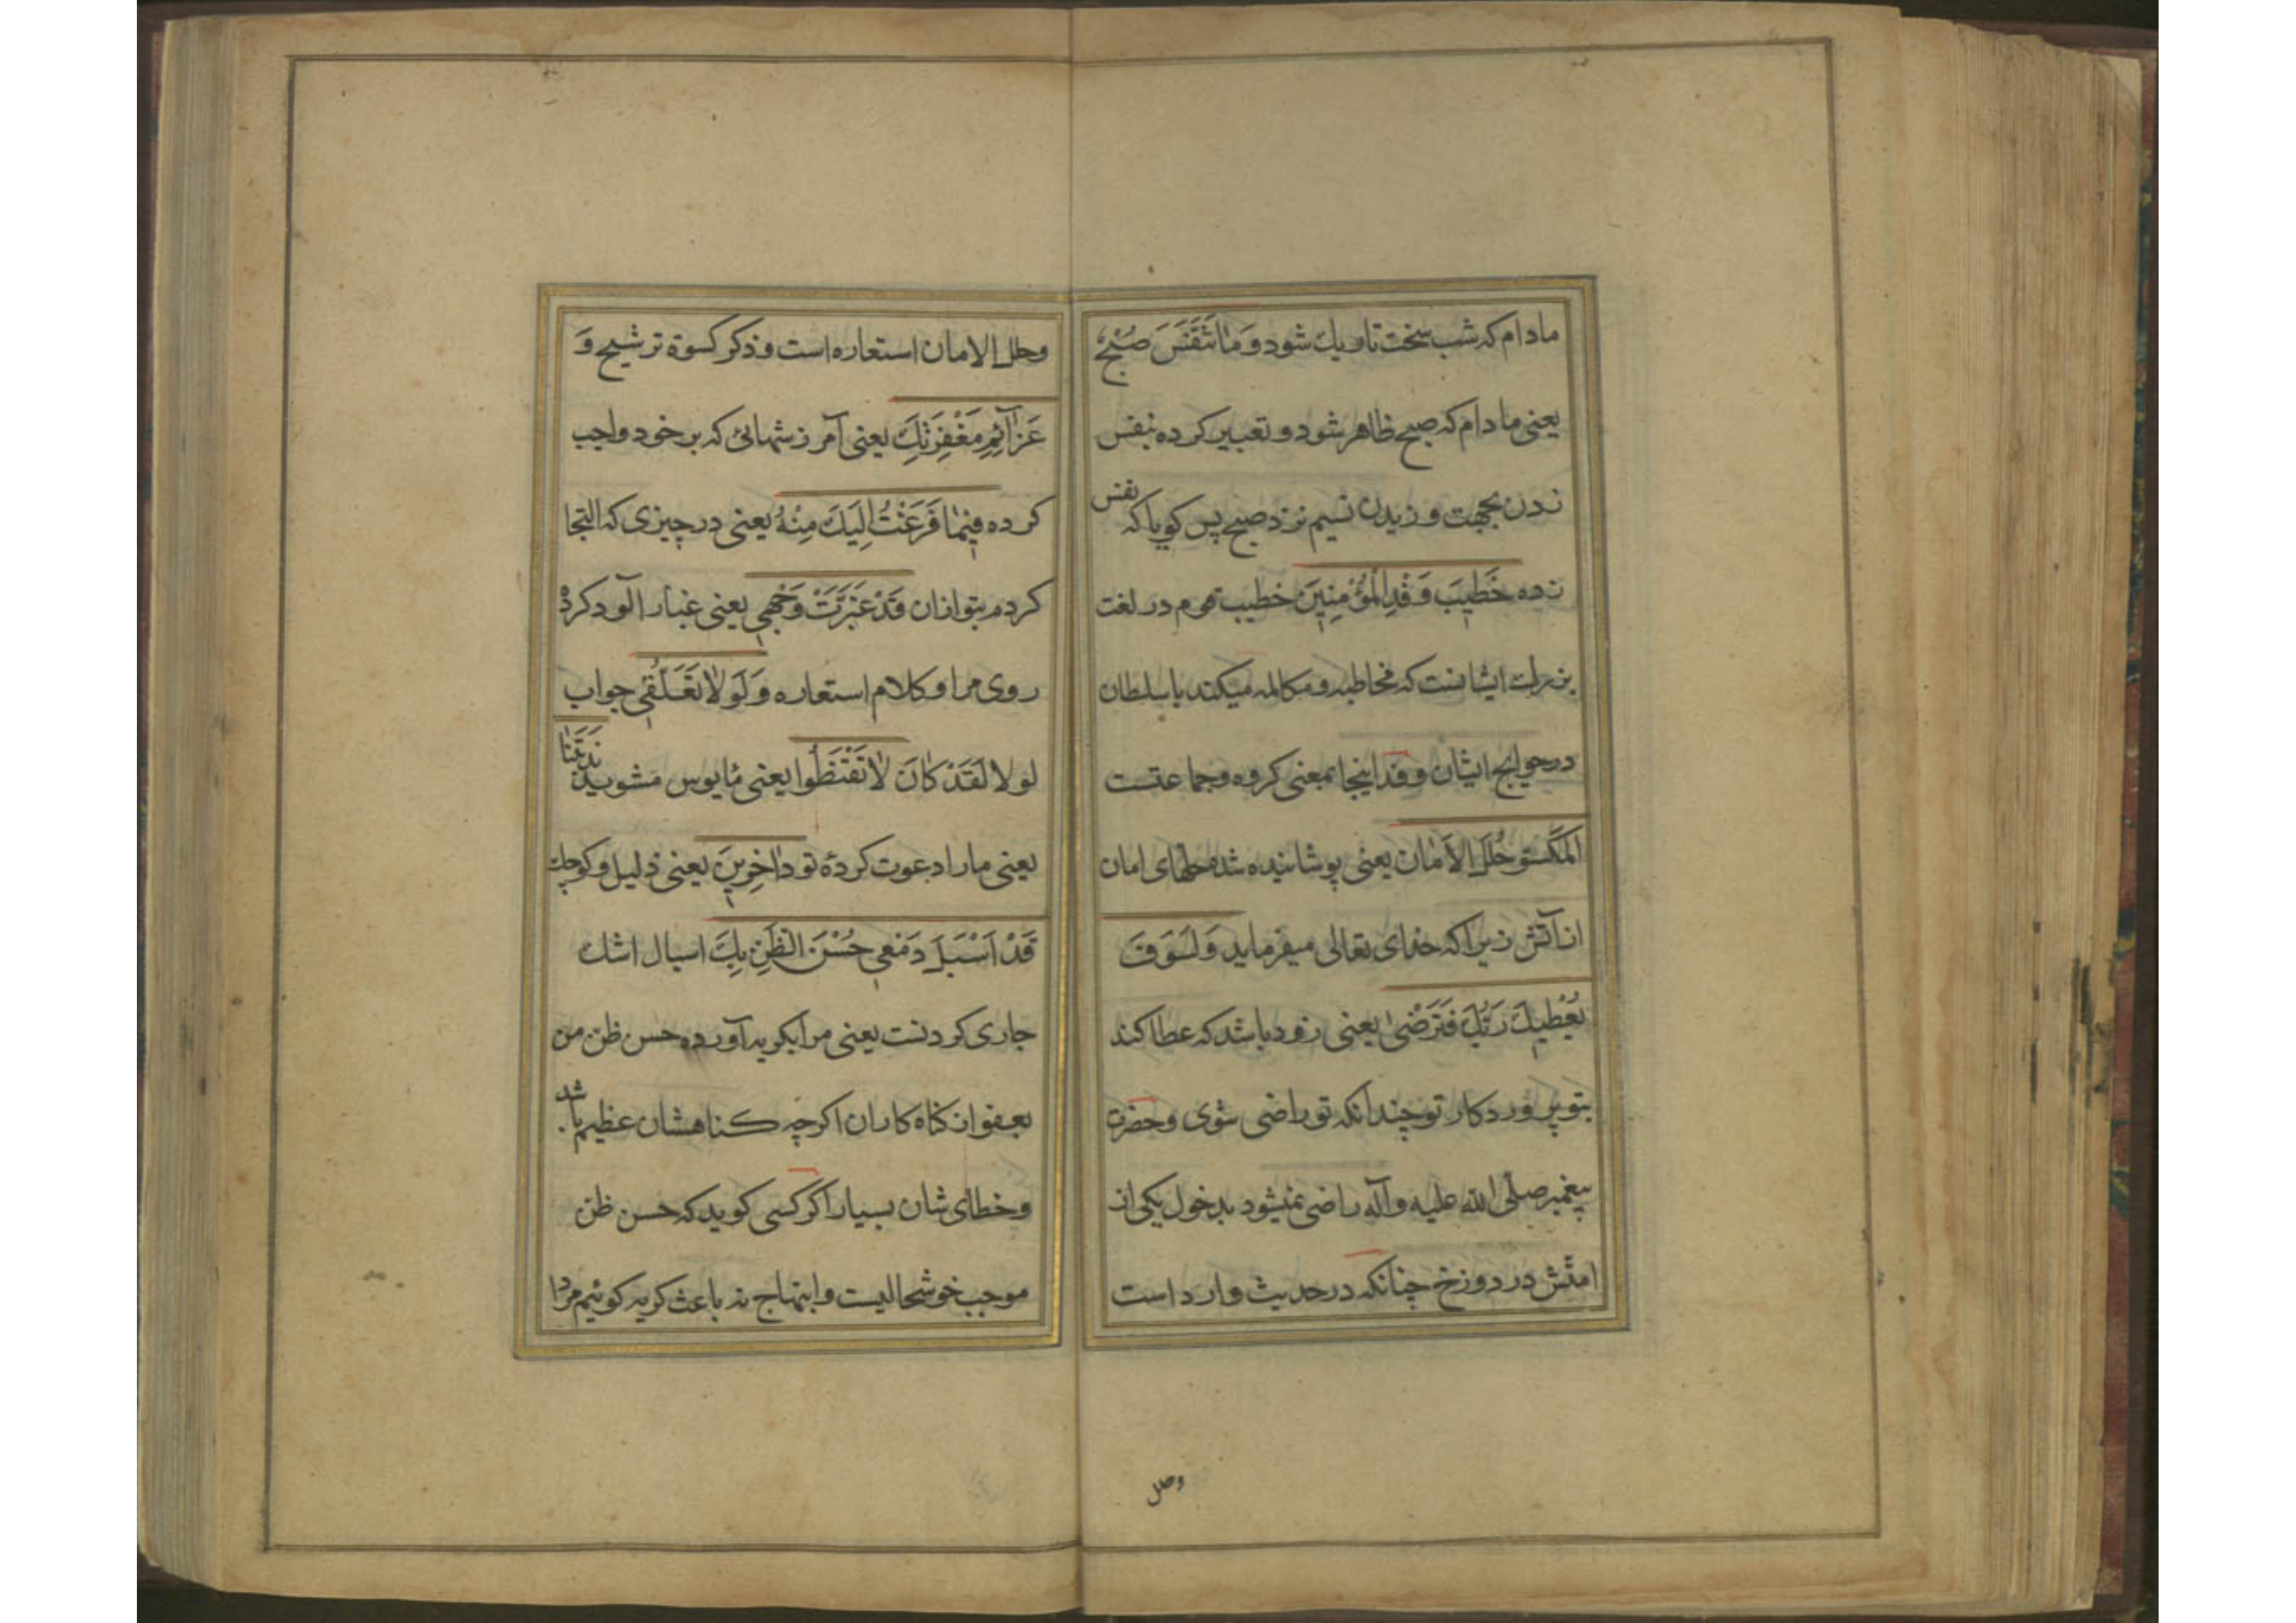 مادام که شب سخت تاریک شود وَ مٰا تَنَفَّسَ صُبْحٌ
یعنی مادام که صبح ظاهر شود و تعبیر کرده بنفس
زدن بجهت وزیدن نسیم نزد صبح پس کویا که نفس
زده خَطیبَ وَفْدِ الْمُؤْمِنینَ خطیب قوم در لغت
بزرک ایشانست که مخاطبه و مکالمه میکند با سلطان
در حوایج ایشان و وفد اینجا بمعنی کروه و جماعتست
الْمَکْسُوِّ حُلَلَ الْاَمٰان یعنی پوشانیده شده حلهای امان
از آتش زیرا که خدای تعالی میفرماید وَلَسَوْفَ
یُعْطیکَ رَبُّکَ فَتَرْضیٰ یعنی زود باشد که عطا کند
بتو پروردکار تو چندانکه تو راضی شوی و حضرت
پیغمبر صلّی اللّه علیه و آله راضی نمیشود بدخول یکی از
امتش در دوزخ چنانکه در حدیث وارد است
وحلل
وحلل الامان استعاره است و ذکر کسوة ترشیح وَ
عَزٰآئِمِ مَغْفِرَتِکَ یعنی آمرزشهائی که بر خود واجب
کرده فیمٰا فَرَغْتُ اِلَیْکَ مِنْهُ یعنی در چیزی که التجا
کردم بتو ازان قَدْ غَبَّرَتْ وَجْهی یعنی غبار آلود کرده
روی مرا و کلام استعاره وَلَوْلاٰ تَعَلُّقی جواب
لولا لَقَدْ کٰانَ لاٰ تَقْنَطُوا یعنی مایوس مشوید نَدَبْتَنٰا
یعنی ما را دعوت کردۀ تو دٰاخِرینَ یعنی ذلیل و کوچک
قَدْ اَسْبَلَ دَمْعی حُسْنَ الظَّنِّ بِکَ اسبال اشک
جاری کردنست یعنی مرا بکریه آورده حسن ظن من
بعفو از کناه کاران اکرچه کناهشان عظیم باشد
و خطای شان بسیار اکر کسی کوید که حسن ظن
موجب خوشحالیست و ابتهاج نه باعث کریه کوئیم مراد